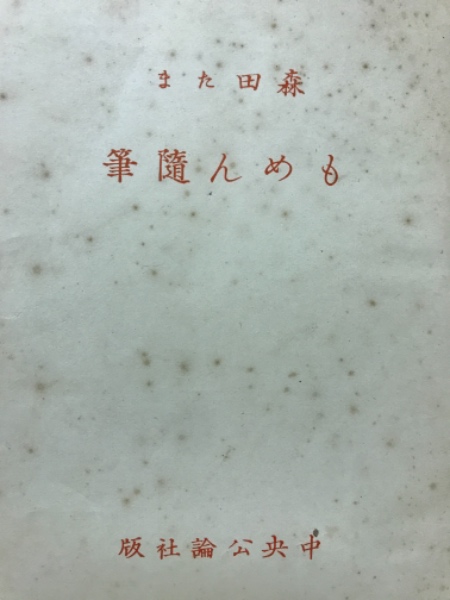 森田たま
もめん随筆
中央公論社版